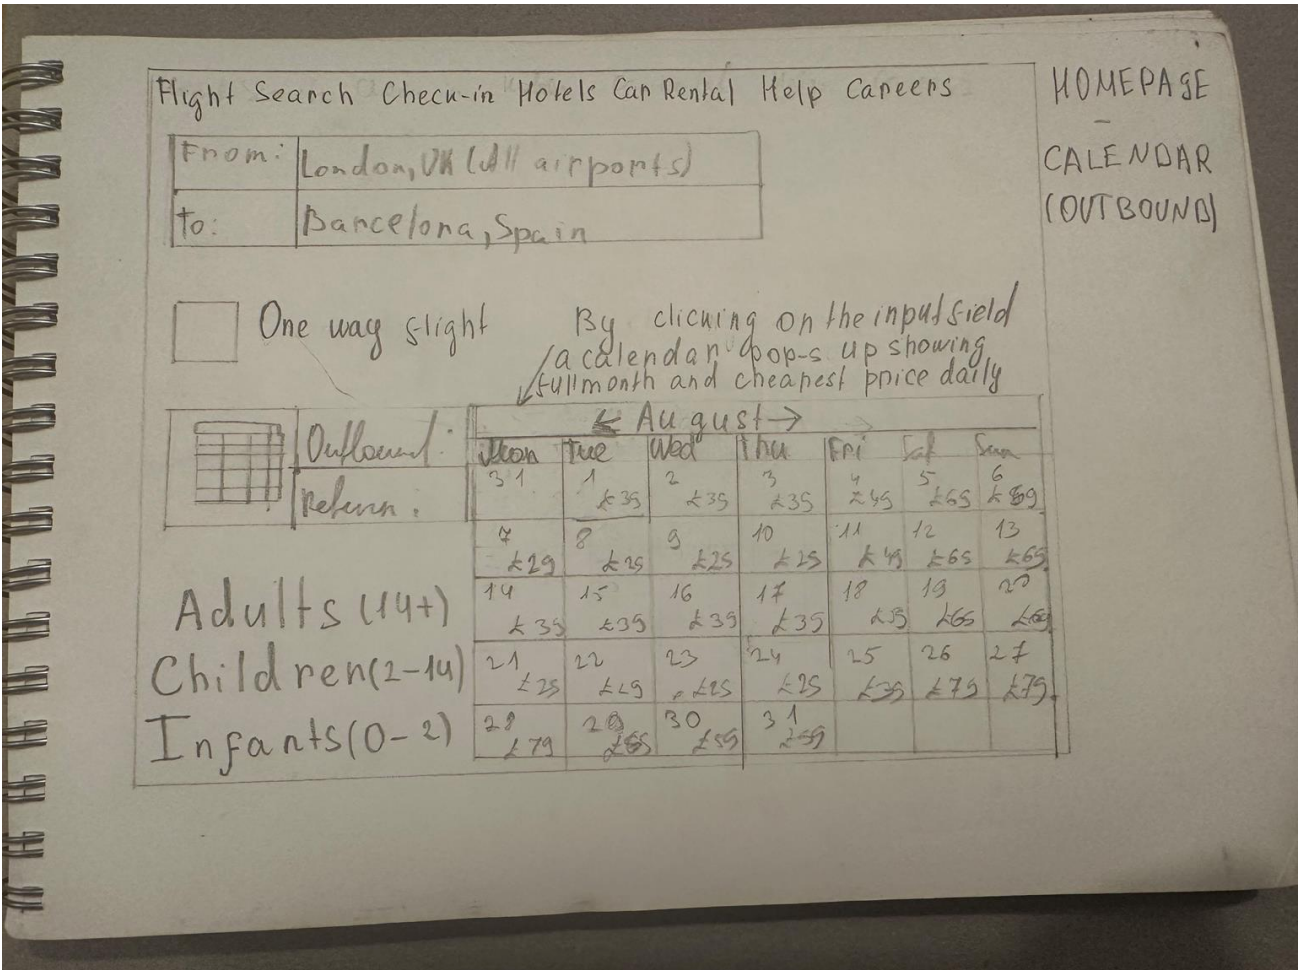 Flight Search Check-in Hotels Car Rental Help Careers
HOMEPAGE
-
CALENDAR
(OUTBOUND)
From: London, UK (All airports)
To: Barcelona, Spain
One way flight
By clicking on the input field
a calendar pop-s up showing
full month and cheapest price daily
← August →
Outbound:
Return:
Mon Tue Wed Thu Fri Sat Sun
31 1 2 3 4 5 6
£39 £39 £39 £49 £69
7 8 9 10 11 12 13
£29 £29 £29 £29 £49 £69 £69
14 15 16 17 18 19 20
£39 £39 £39 £39 £69
21 22 23 24 25 26 27
£29 £29 £29 £29 £39 £79 £79
28 29 30 31
£79 £59
Adults (14+)
Children (2-14)
Infants (0-2)